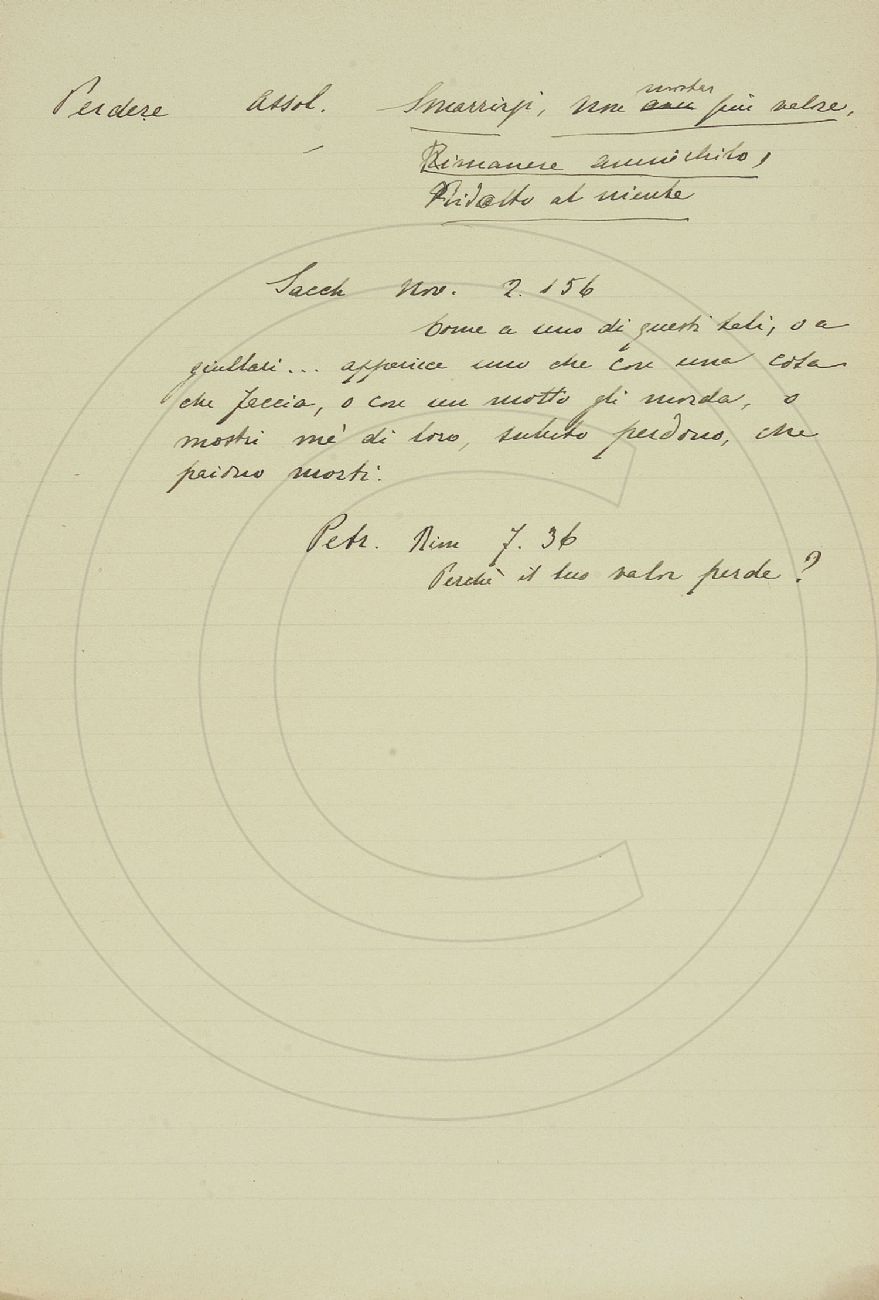 Perdere assol. Smarrirsi, non mostrar più valore,
Rimanere annichilito,
Ridotto al niente
Sacch Nov. 2. 156
Come a uno di questi tali, o a
giullari... apparisce uno che con una cosa
che faccia, o con un motto gli morda, o
mostri me' di loro, subito perdono, che
paiono morti.
Petr. Rim 7. 36
Perchè il tuo valor perde?